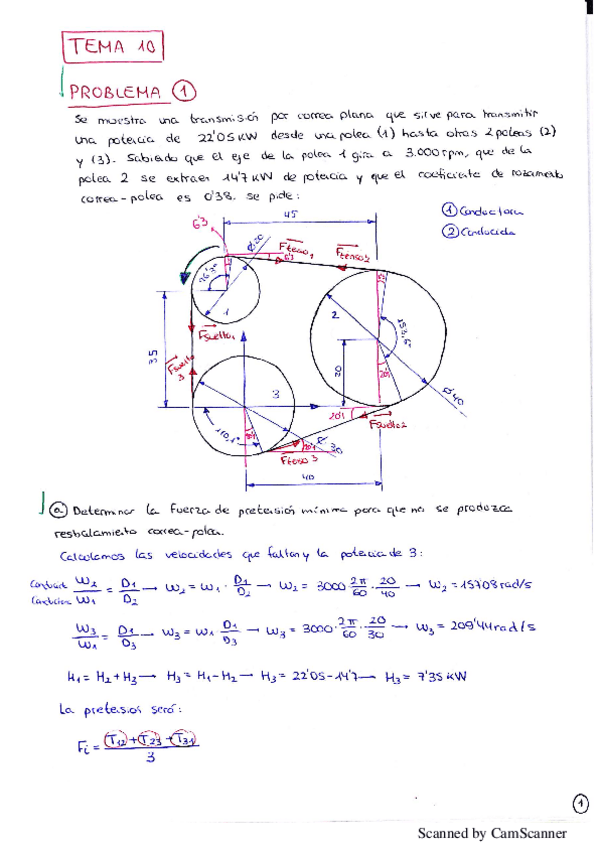 TEMA 10
PROBLEMA 1
Se muestra una transmisión por correa plana que sirve para transmitir
una potencia de 22'05 KW desde una polea (1) hasta otras 2 poleas (2)
y (3). Sabiendo que el eje de la polea 1 gira a 3.000 rpm, que de la
polea 2 se extraen 14'7 KW de potencia y que el coeficiente de rozamiento
correa-polea es 0'38. Se pide:
① Conductora
② Conducida
45
6'3
Ø20
Ftenso1
Ftenso2
6'3
1
Fsuelto1
35
Fsuelto3
2
153,6°
20
20'1
Ø40
3
110,1°
Ø30
20'1
Fsuelto2
20'1
Ftenso3
40
a) Determinar la fuerza de pretensión mínima para que no se produzca
resbalamiento correa-polea.
Calculamos las velocidades que faltan y la potencia de 3:
W2/W1 = D1/D2 → W2 = W1 · D1/D2 → W2 = 3000 · 2π/60 · 20/40 → W2 = 157'08 rad/s
W3/W1 = D1/D3 → W3 = W1 D1/D3 → W3 = 3000 · 2π/60 · 20/30 → W3 = 209'44 rad/s
H1 = H2 + H3 → H3 = H1 - H2 → H3 = 22'05 - 14'7 → H3 = 7'35 KW
La pretensión será:
Fi = (T12 + T23 + T31)/3
1
Scanned by CamScanner